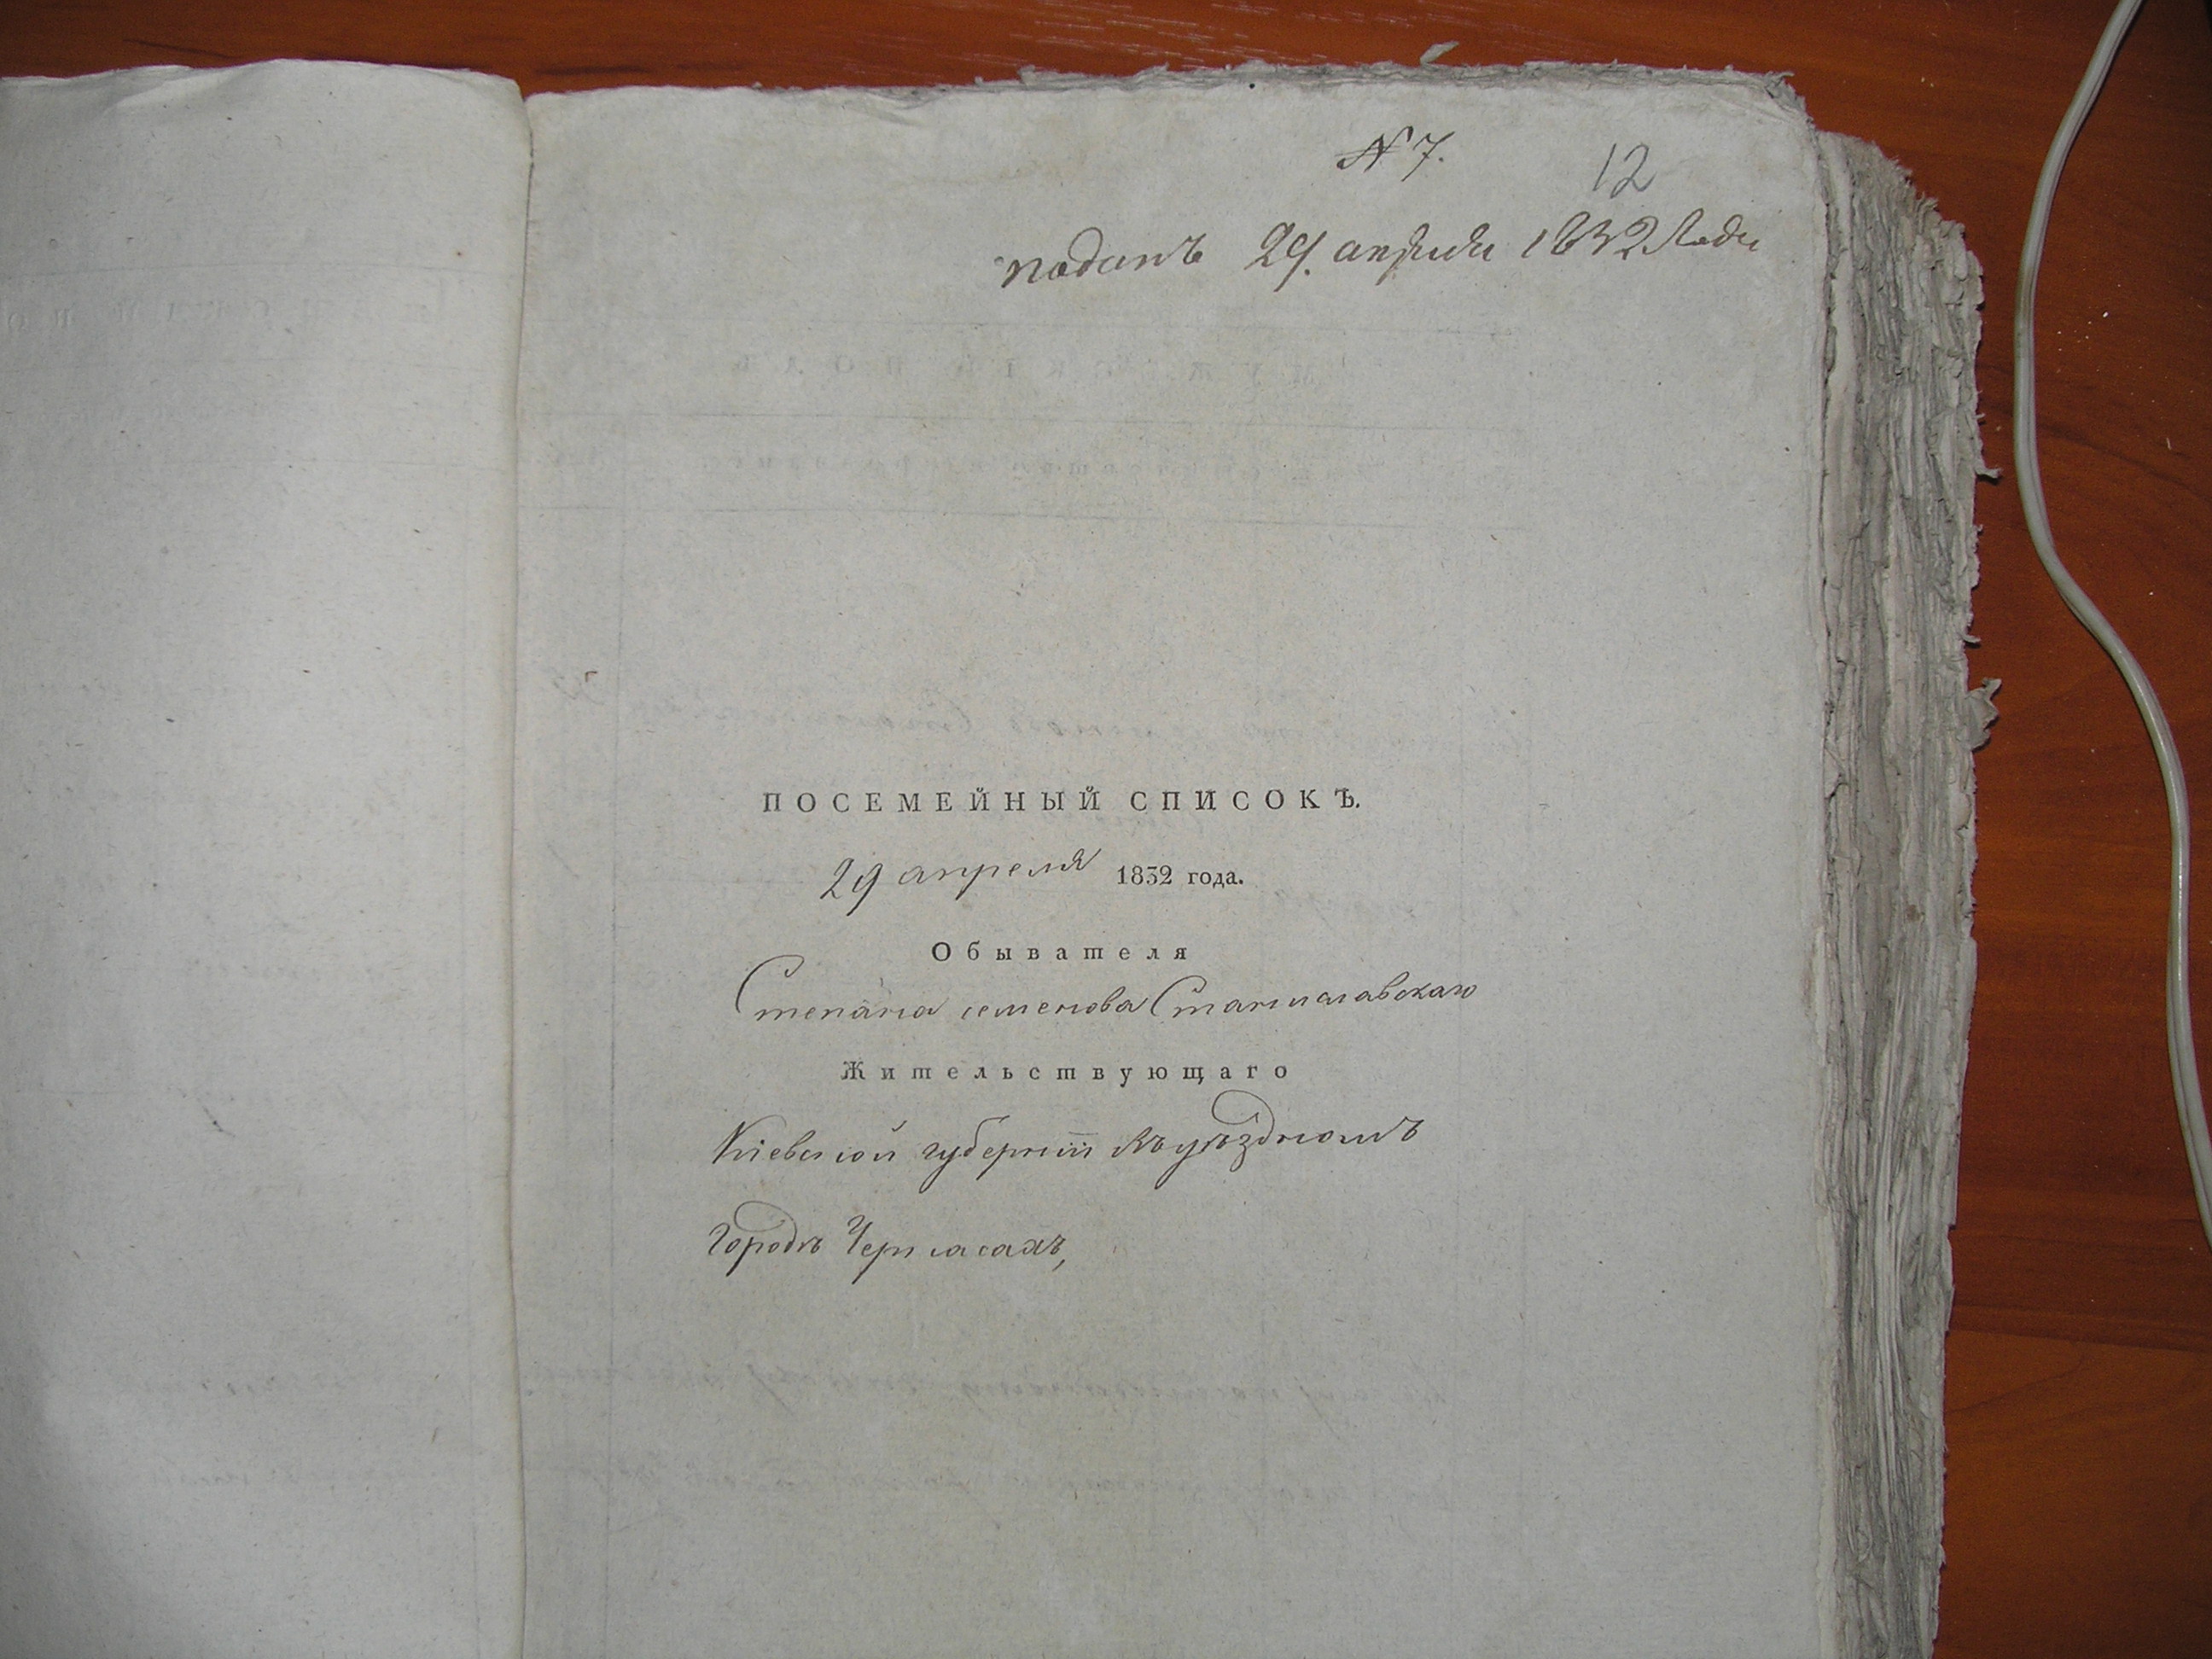 N 7.
12
поданъ 29. апреля 1832 Года
ПОСЕМЕЙНЫЙ СПИСОКЪ.
29 апреля 1832 года.
Обывателя
Степана семенова Станиславскаго
Жительствующаго
Кіевской губерніи въ уѣздномъ
Городѣ Черкасахъ,